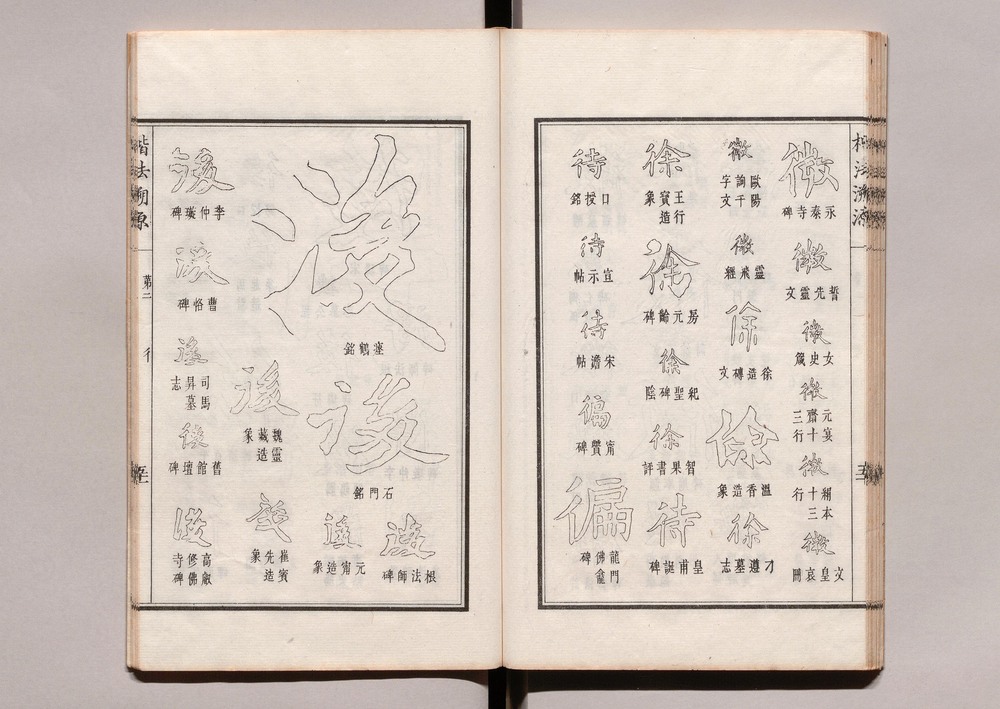 楷法溯源
微
永泰寺碑
微
誓先靈文
微
女史箴
微
元宴齋十三行
微
絹本十三行
微
文皇哀冊
微
歐陽詢千字文
微
靈飛經
徐
徐造磚文
徐
溫香造象
徐
刁遵墓志
徐
王行寶造象
徐
房元齡碑
徐
紀聖碑陰
徐
智果書評
待
皇甫誕碑
待
口授銘
待
宣示帖
待
宋儋帖
徧
甯贙碑
徧
龍門佛龕碑
後
瘞鶴銘
後
石門銘
後
根法師碑
後
元甯造象
後
魏靈藏造象
後
崔賓先造象
後
李仲璇碑
後
曹恪碑
後
司馬昇墓志
後
舊館壇碑
後
高叡修佛寺碑
楷法溯源
第二
彳